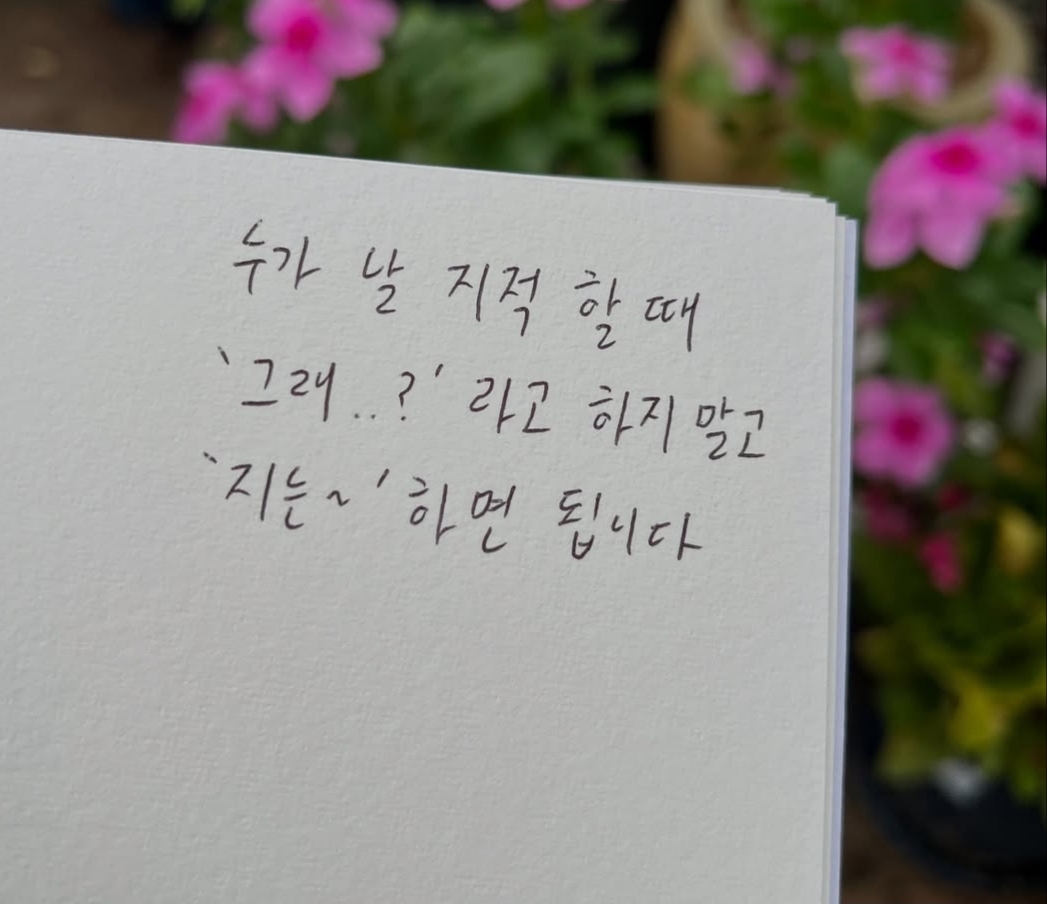 누가 날 지적 할 때
'그래..?' 라고 하지 말고
'지는~' 하면 됩니다